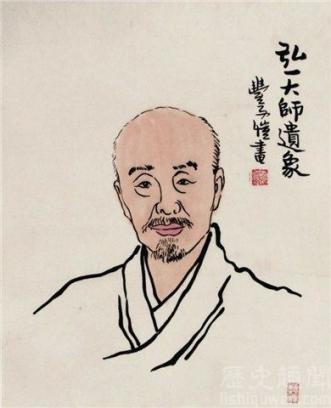 弘一大師遺象
豐子愷畫
歷史趣聞
lishiquwen.com